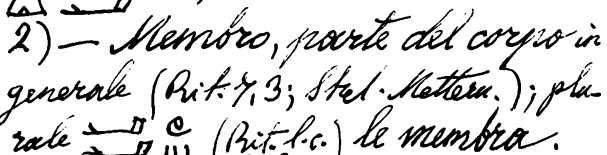 2) — Membro, parte del corpo in
generale (Rit. 7, 3; Stel. Mettern.); plu-
rale (Rit. l. c.) le membra.